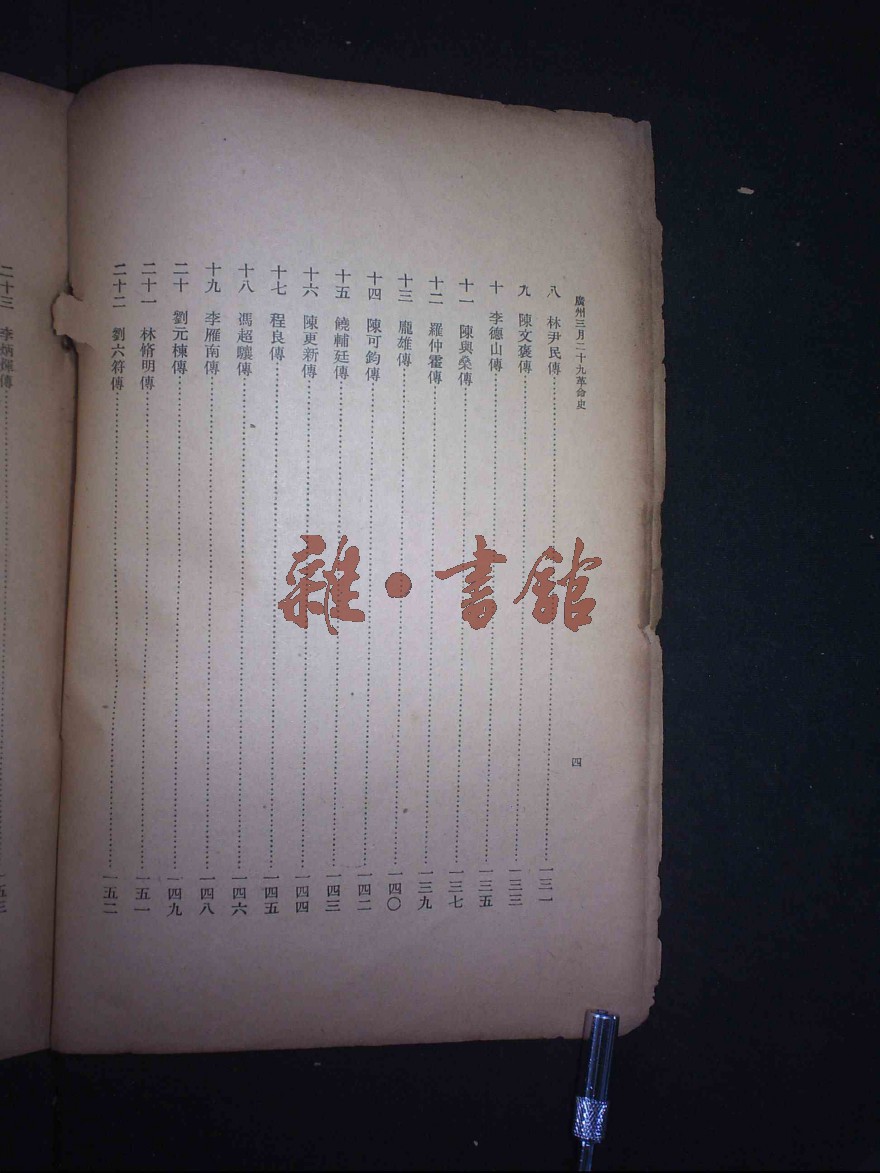 廣州三月二十九革命史
四
八 林尹民傳 一三一
九 陳文褒傳 一三三
十 李德山傳 一三五
十一 陳與燊傳 一三七
十二 羅仲霍傳 一三九
十三 龐雄傳 一四〇
十四 陳可鈞傳 一四二
十五 饒輔廷傳 一四三
十六 陳更新傳 一四四
十七 程良傳 一四五
十八 馮超驤傳 一四六
十九 李雁南傳 一四八
二十 劉元棟傳 一四九
二十一 林脩明傳 一五一
二十二 劉六符傳 一五二
二十三 李炳輝傳 一五三
雜·書館